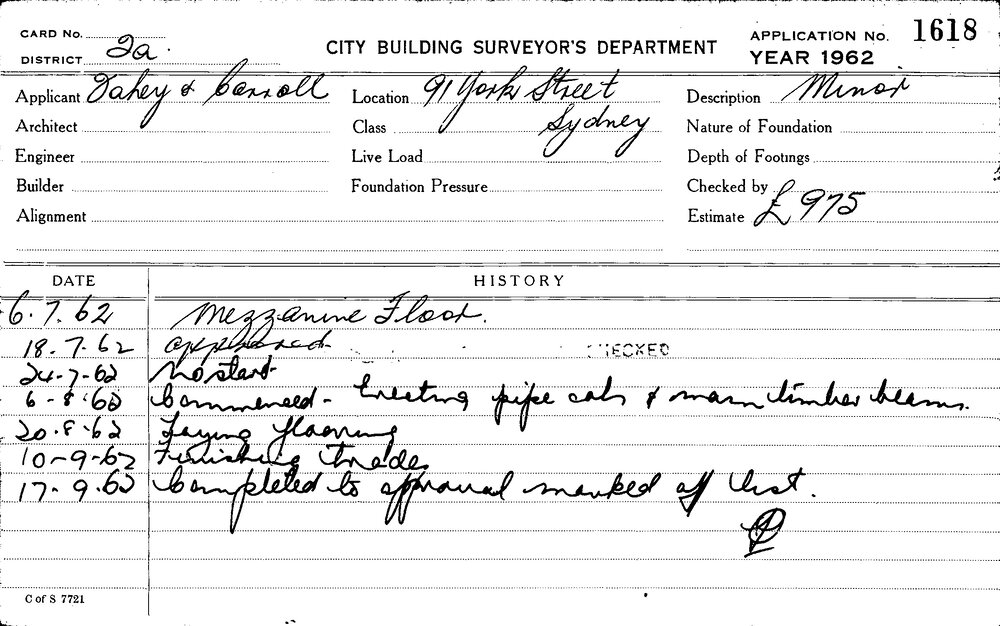 CARD No.
DISTRICT 2a.
CITY BUILDING SURVEYOR'S DEPARTMENT
APPLICATION No. 1618
YEAR 1962
Applicant Fahey & Carroll Location 91 York Street Description Minor
Architect Class Sydney Nature of Foundation
Engineer Live Load Depth of Footings
Builder Foundation Pressure Checked by
Alignment Estimate £ 975
DATE HISTORY
6.7.62 Mezzanine Floor.
18.7.62 approved CHECKED
24-7-62 No start
6-8-62 Commenced - Erecting pipe cols & main timber beams.
20.8.62 Laying flooring
10-9-62 Finishing trades
17-9.62 Completed to approval marked off list.
C of S 7721